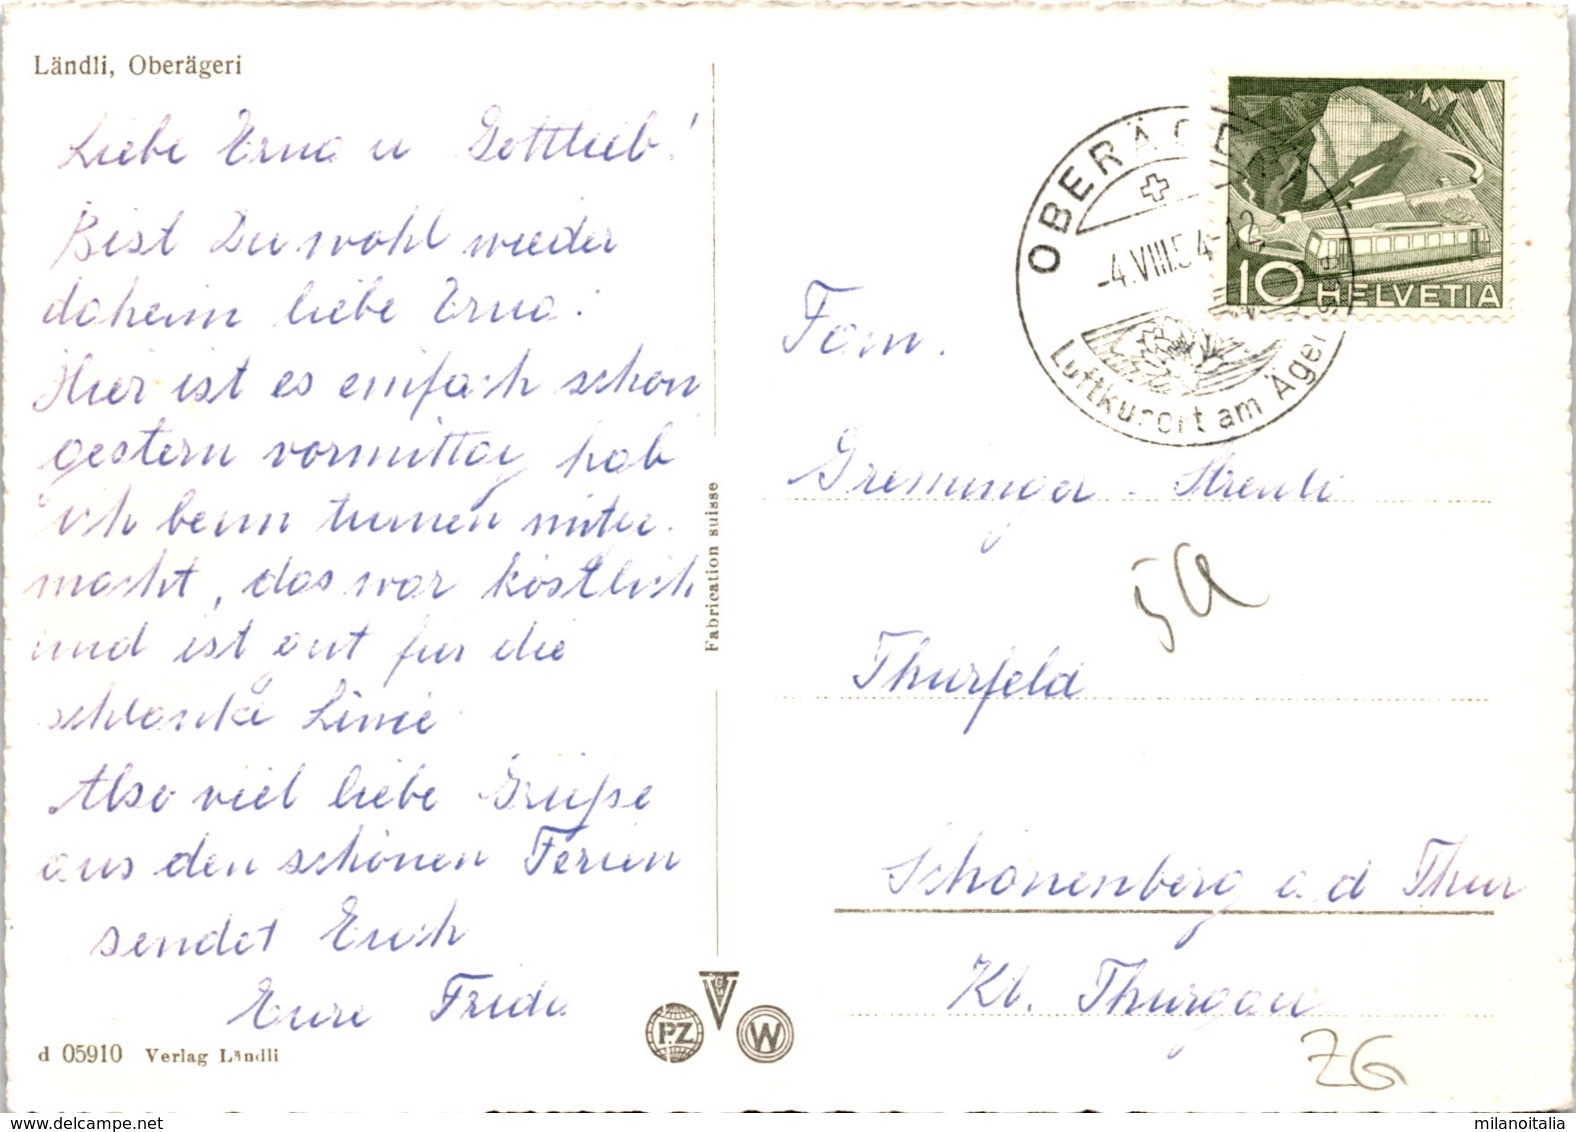 Ländli, Oberägeri
Liebe Erna u Gottlieb!
Bist Du wohl wieder
daheim liebe Erna.
Hier ist es einfach schön
gestern vormittag hab
ich beim turnen mitge-
macht, das war köstlich
und ist gut für die
schlanke Linie
Also viel liebe Grüße
aus den schönen Ferien
sendet Euch
Eure Frida
d 05910 Verlag Ländli
Fabrication suisse
PZ
W
OBERÄGERI
-4.VIII.54-12
Luftkurort am Ägerisee
10 HELVETIA
Fam.
Greminger - Streuli
5a
Thurfeld
Schönenberg a. d Thur
Kt. Thurgau
ZG
www.delcampe.net
milanoitalia